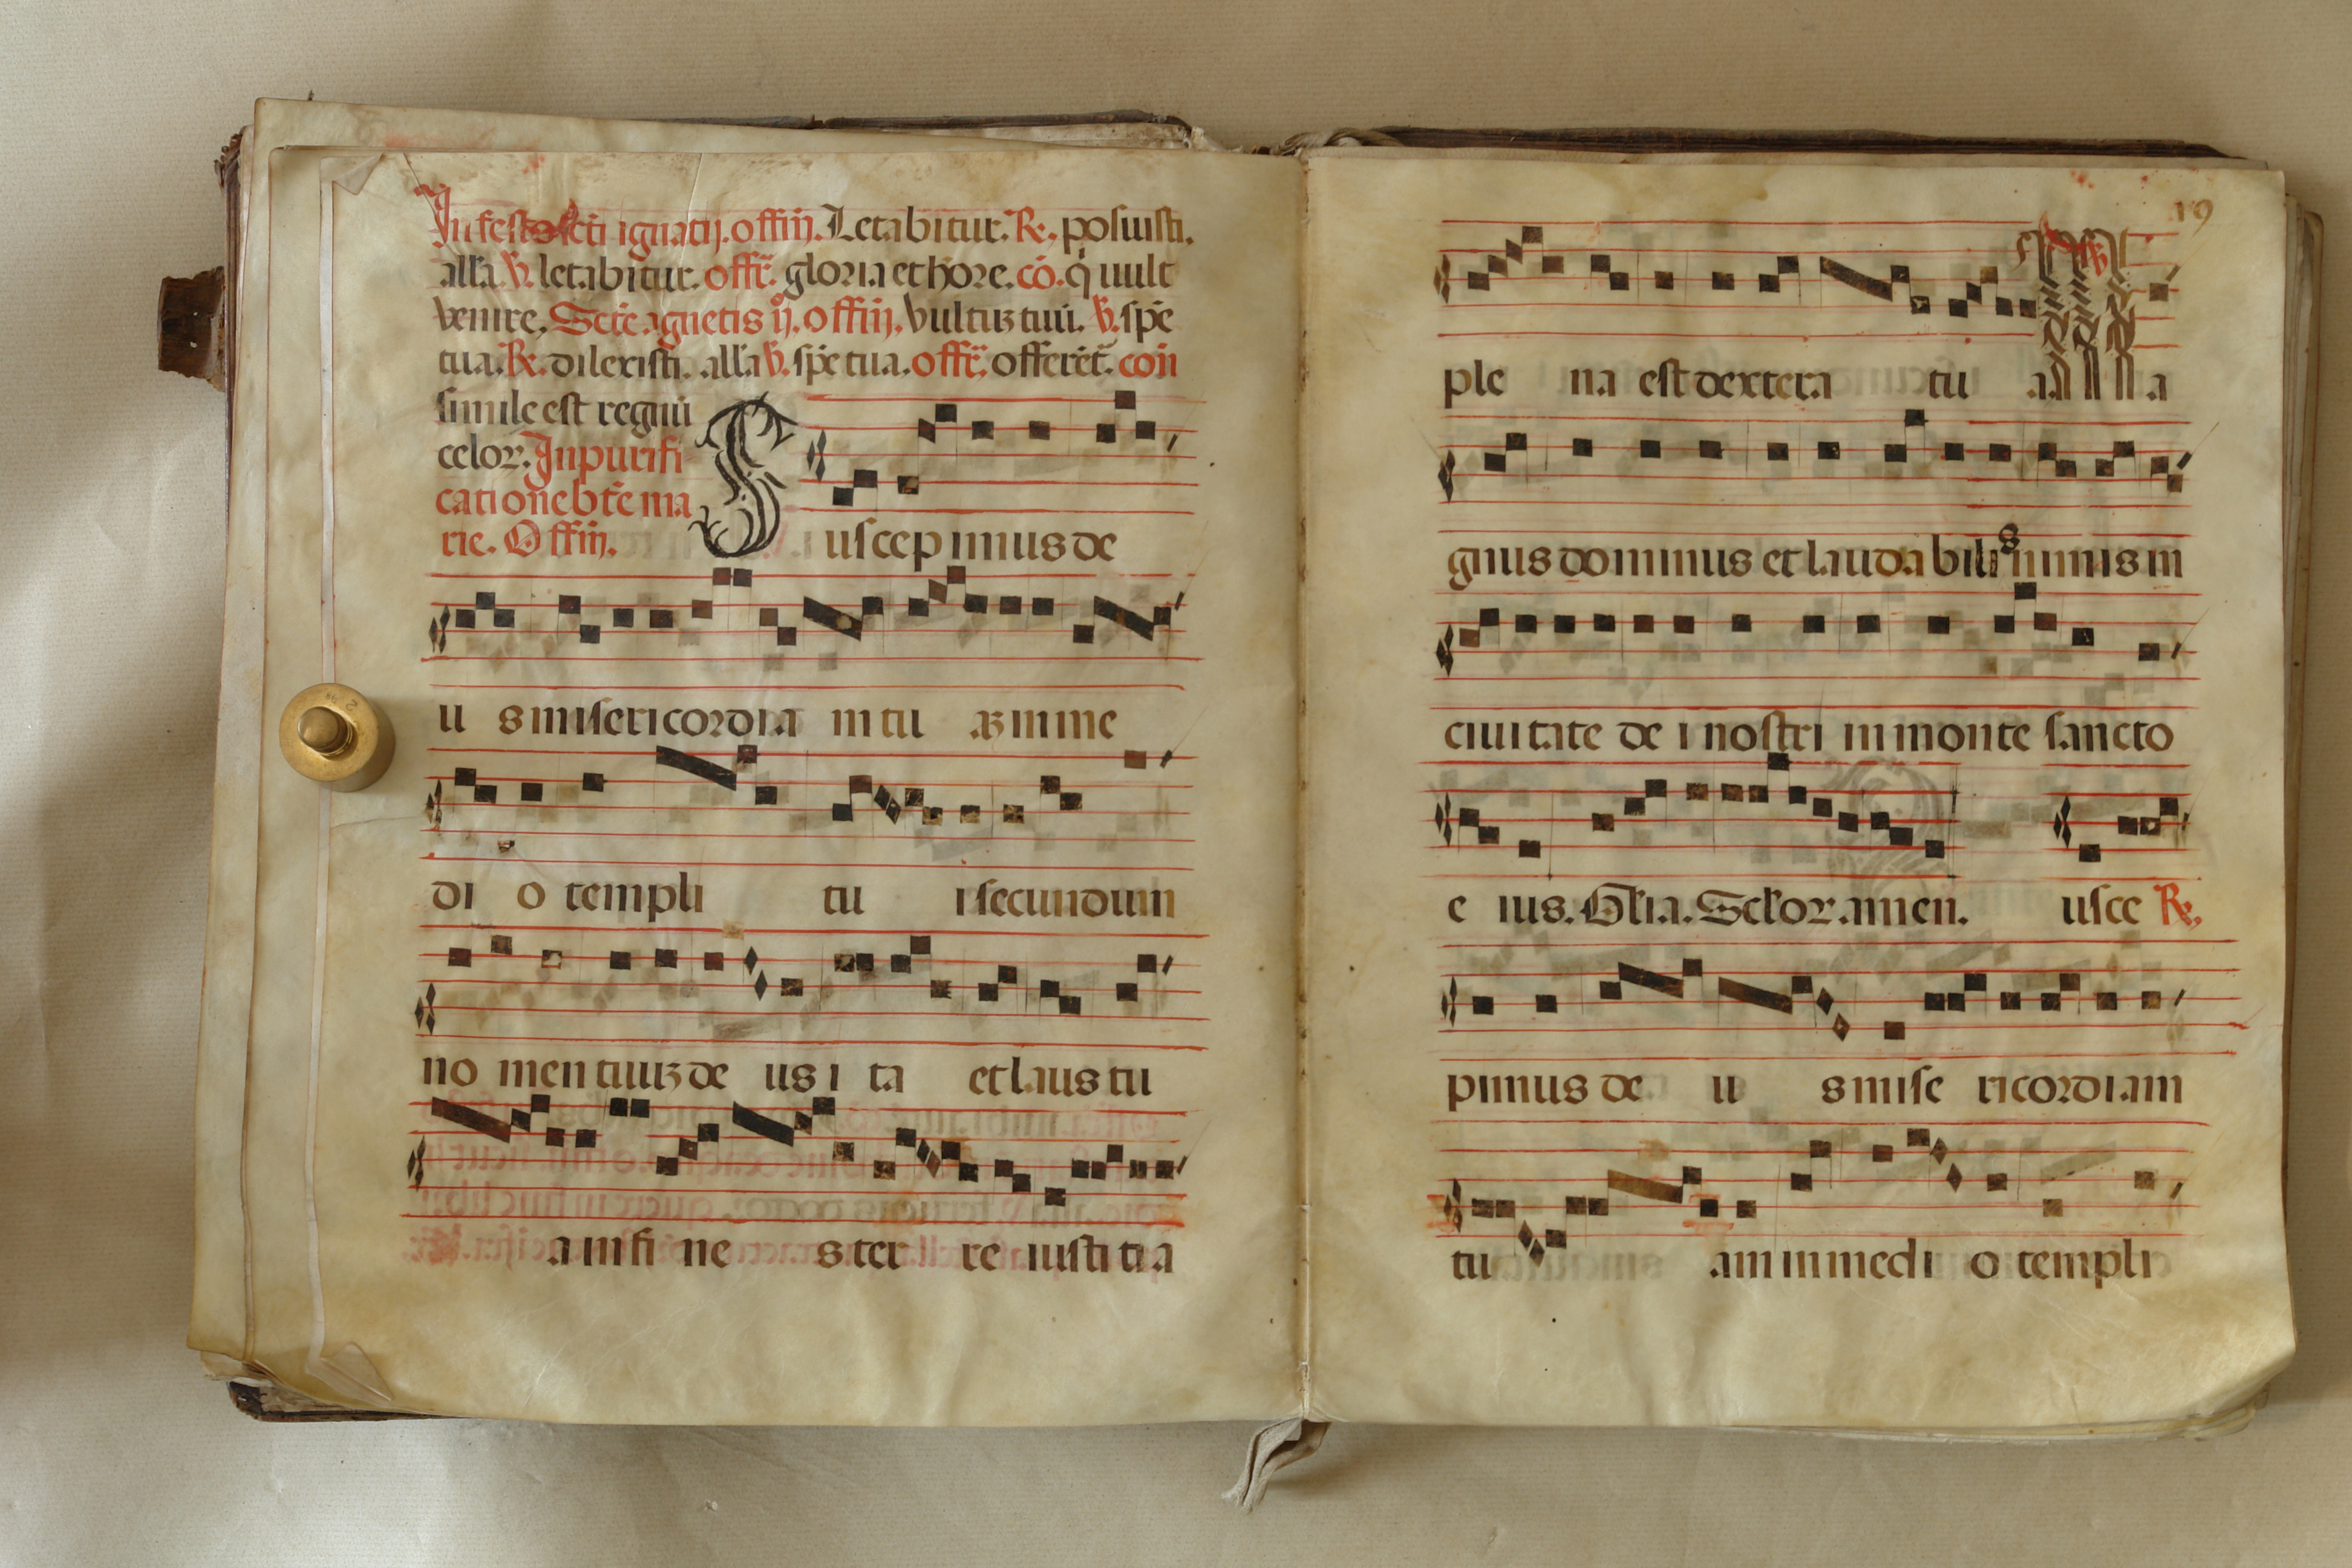 In festo scti ignatij. offiu̅. Letabitur. R. posuisti.
alla. V. letabitur. offr̅. gloria et hore. co̅. q̇ uult
venire. Scte̅ agnetis ij. offiu̅. Vultuꝫ tuu̅. V. spe̅
tua. R. dilexisti. alla V. spe̅ tua. offr̅. offere̅t̅. con̅
simile est regnu̅
celoꝝ. In purifi
catione bte̅ ma
rie. Offiu̅.
S uscepimus de
u s misericordia m tu aꝫ in me
di o templi tu i secundum
no men tuuꝫ de us i ta et laus tu
a in fi ne s ter re iusti ti a
19
ple na est dextera tu a a
gnus dominus et laudabilis nimis in
ciuitate de i nostri in monte sancto
e ius. Gl̅ia. Sc̅l̅oꝝ. amen. usce R.
pimus de u s mise ricordiam
tu am in medi o templi